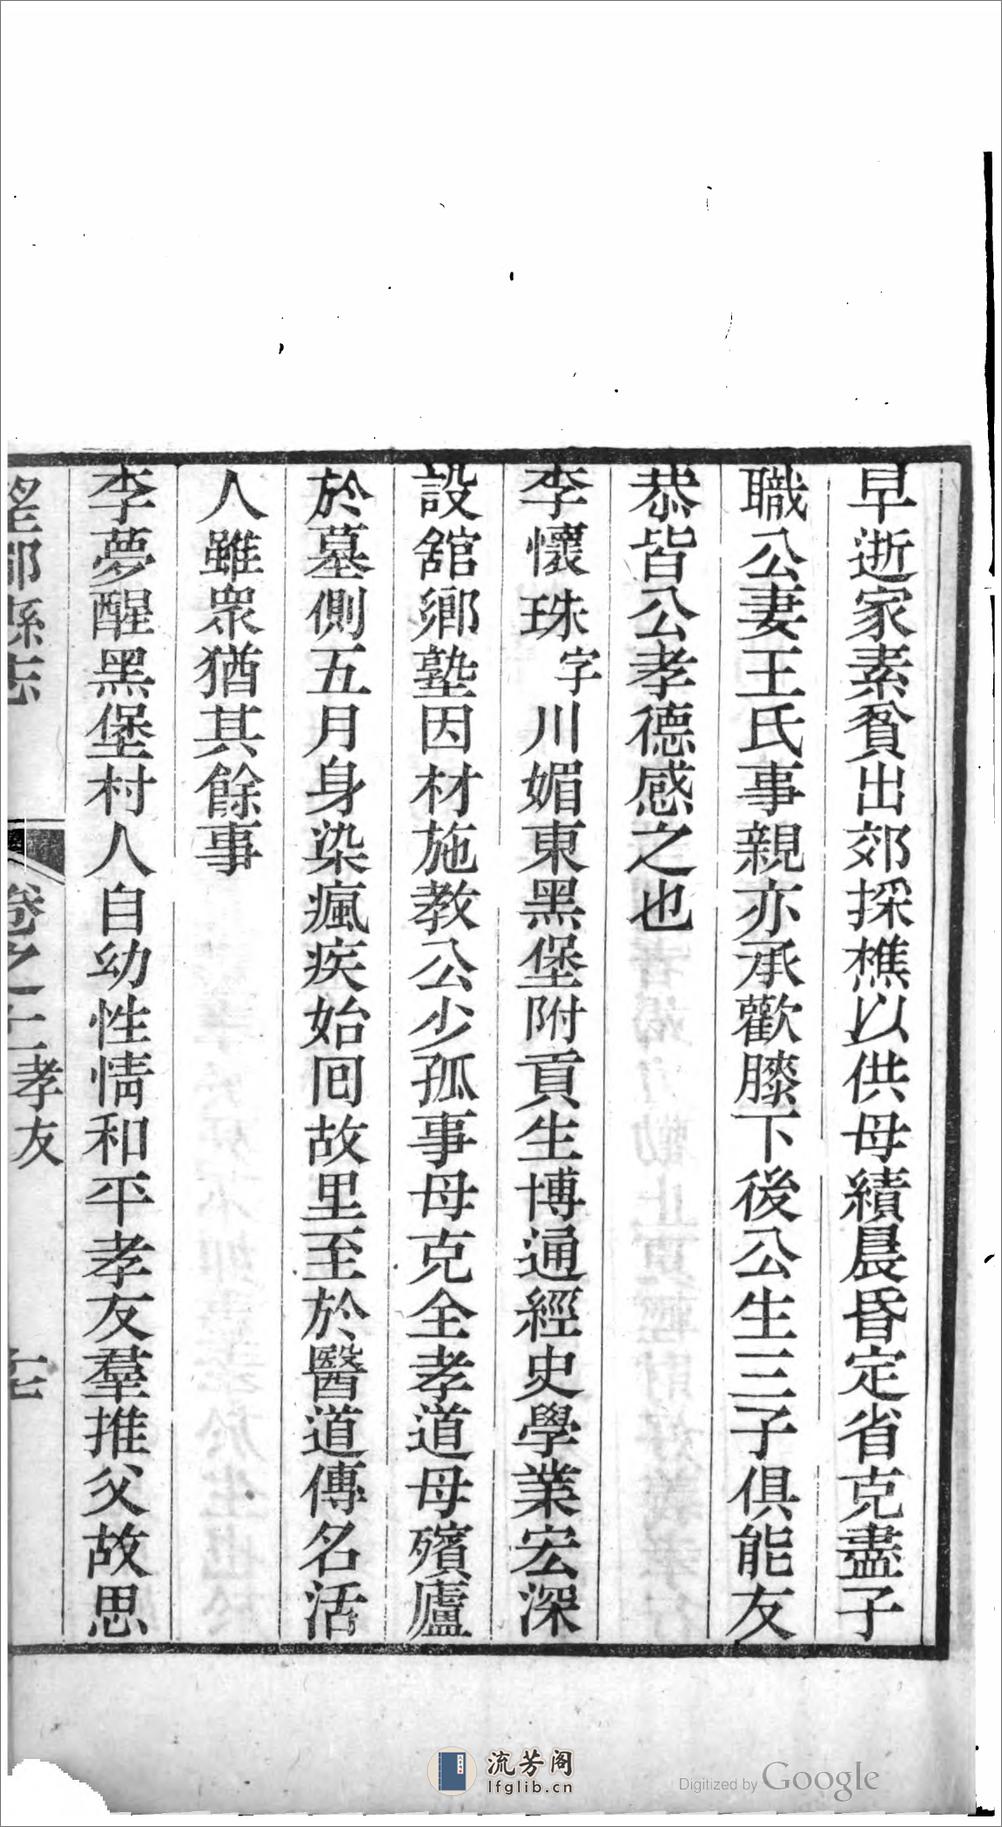 早逝家素貧出郊採樵以供母績晨昏定省克盡子
職公妻王氏事親亦承歡膝下後公生三子俱能友
恭皆公孝德感之也
李懷珠字川媚東黑堡附貢生博通經史學業宏深
設舘鄉塾因材施教公少孤事母克全孝道母殯廬
於墓側五月身染瘋疾始回故里至於醫道傳名活
人雖眾猶其餘事
李夢醒黑堡村人自幼性情和平孝友羣推父故思
望都縣志 卷之 孝友
流芳阁
lfglib.cn
Digitized by Google